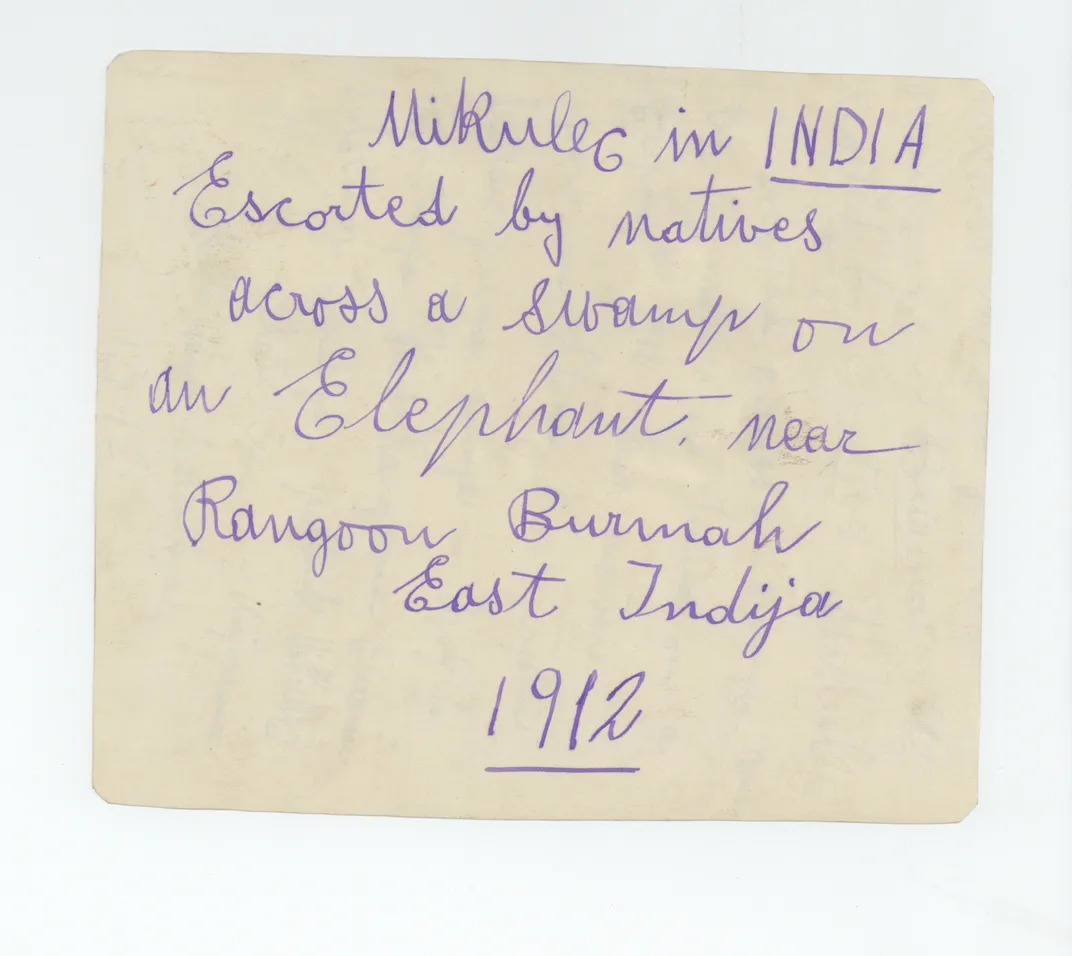 Mikulec in INDIA
Escorted by natives
across a swamp on
an Elephant. near
Rangoon Burmah
East Indija
1912